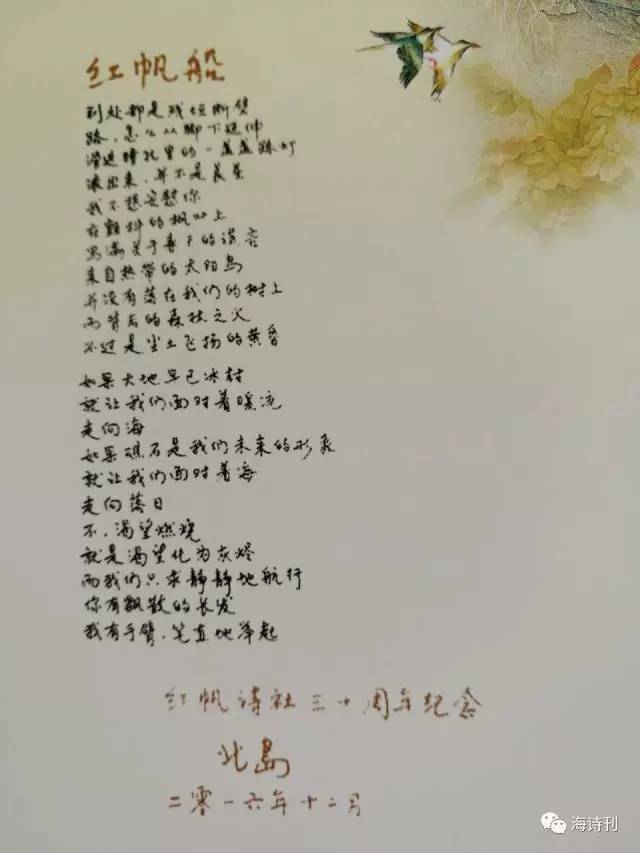 红帆船
到处都是残垣断壁
路，怎么从脚下延伸
滑进瞳孔里的一盏盏路灯
滚出来，并不是晨星
我不想安慰你
在颤抖的枫叶上
写满关于春天的谎言
来自热带的太阳鸟
并没有落在我们的树上
而背后的森林之火
不过是尘土飞扬的黄昏
如果大地早已冰封
就让我们面对着暖流
走向海
如果礁石是我们未来的形象
就让我们面对着海
走向落日
不，渴望燃烧
就是渴望化为灰烬
而我们只求静静地航行
你有飘散的长发
我有手臂，笔直地举起
红帆诗社三十周年纪念
北岛
二零一六年十二月
海诗刊